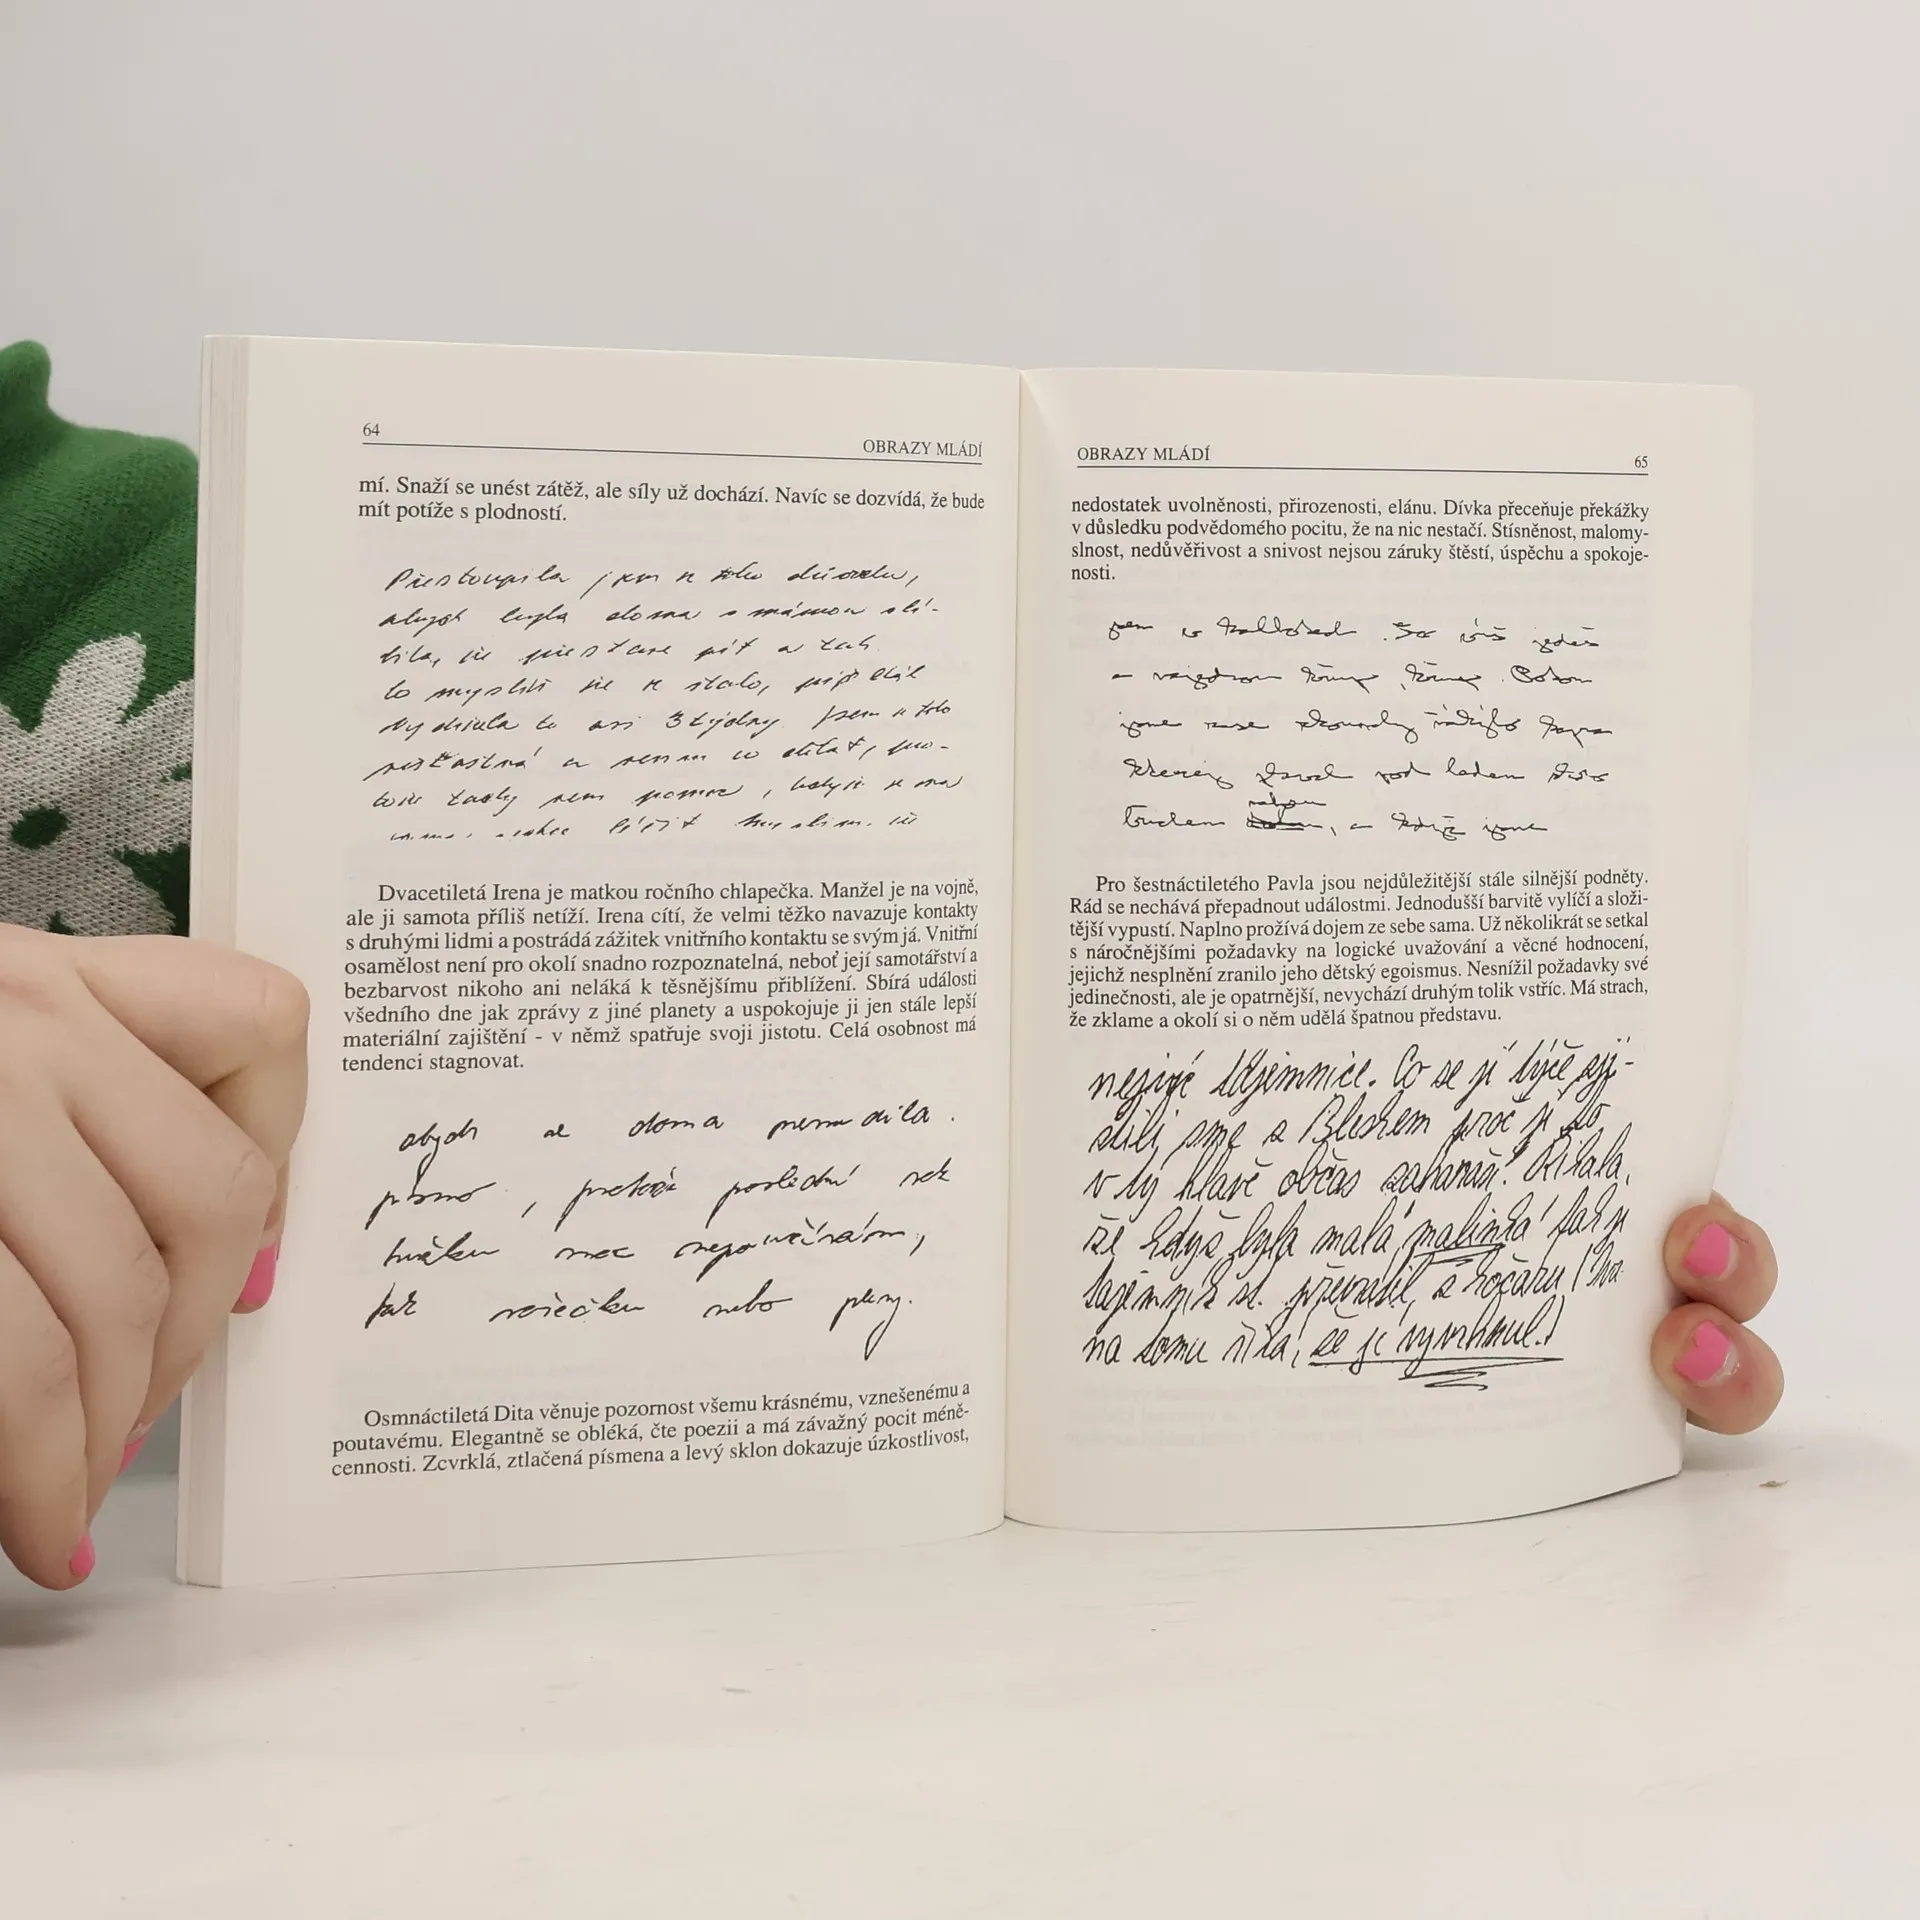 64
OBRAZY MLÁDÍ
mí. Snaží se unést zátěž, ale síly už dochází. Navíc se dozvídá, že bude
mít potíže s plodností.
Přestoupila jsem z toho důvodu,
abych byla doma s mámou a
že přestane pít a tak
to myslíš že se stalo,
Vydržela to asi 3 týdny. Jsem z toho
nešťastná a nevím co dělat,
tady není pomoc,
léčit. Myslím, že
Dvacetiletá Irena je matkou ročního chlapečka. Manžel je na vojně,
ale ji samota příliš netíží. Irena cítí, že velmi těžko navazuje kontakty
s druhými lidmi a postrádá zážitek vnitřního kontaktu se svým já. Vnitřní
osamělost není pro okolí snadno rozpoznatelná, neboť její samotářství a
bezbarvost nikoho ani neláká k těsnějšímu přiblížení. Sbírá události
všedního dne jak zprávy z jiné planety a uspokojuje ji jen stále lepší
materiální zajištění - v němž spatřuje svoji jistotu. Celá osobnost má
tendenci stagnovat.
abych se doma nenudila.
písmo, protože poslední rok
tužku moc nepoužívám,
tak vařečku nebo pleny.
Osmnáctiletá Dita věnuje pozornost všemu krásnému, vznešenému a
poutavému. Elegantně se obléká, čte poezii a má závažný pocit méně-
cennosti. Zcvrklá, ztlačená písmena a levý sklon dokazuje úzkostlivost,
OBRAZY MLÁDÍ
65
nedostatek uvolněnosti, přirozenosti, elánu. Dívka přeceňuje překážky
v důsledku podvědomého pocitu, že na nic nestačí. Stísněnost, malomy-
slnost, nedůvěřivost a snivost nejsou záruky štěstí, úspěchu a spokoje-
nosti.
jsem
a najednou
jsme zase
pod ledem
budem, a když jsme
Pro šestnáctiletého Pavla jsou nejdůležitější stále silnější podněty.
Rád se nechává přepadnout událostmi. Jednodušší barvitě vylíčí a složi-
tější vypustí. Naplno prožívá dojem ze sebe sama. Už několikrát se setkal
s náročnějšími požadavky na logické uvažování a věcné hodnocení,
jejichž nesplnění zranilo jeho dětský egoismus. Nesnížil požadavky své
jedinečnosti, ale je opatrnější, nevychází druhým tolik vstříc. Má strach,
že zklame a okolí si o něm udělá špatnou představu.
tajemnice. Co se jí týče zji-
stili jsme s Bleskem proč jí to
v tý hlavě občas zaharaší! Říkala,
že když byla malá, malinká! tak ji
tajemník st. převrátil, z kočáru (Ona
na tomu říká, že jí vyvrhnul.)